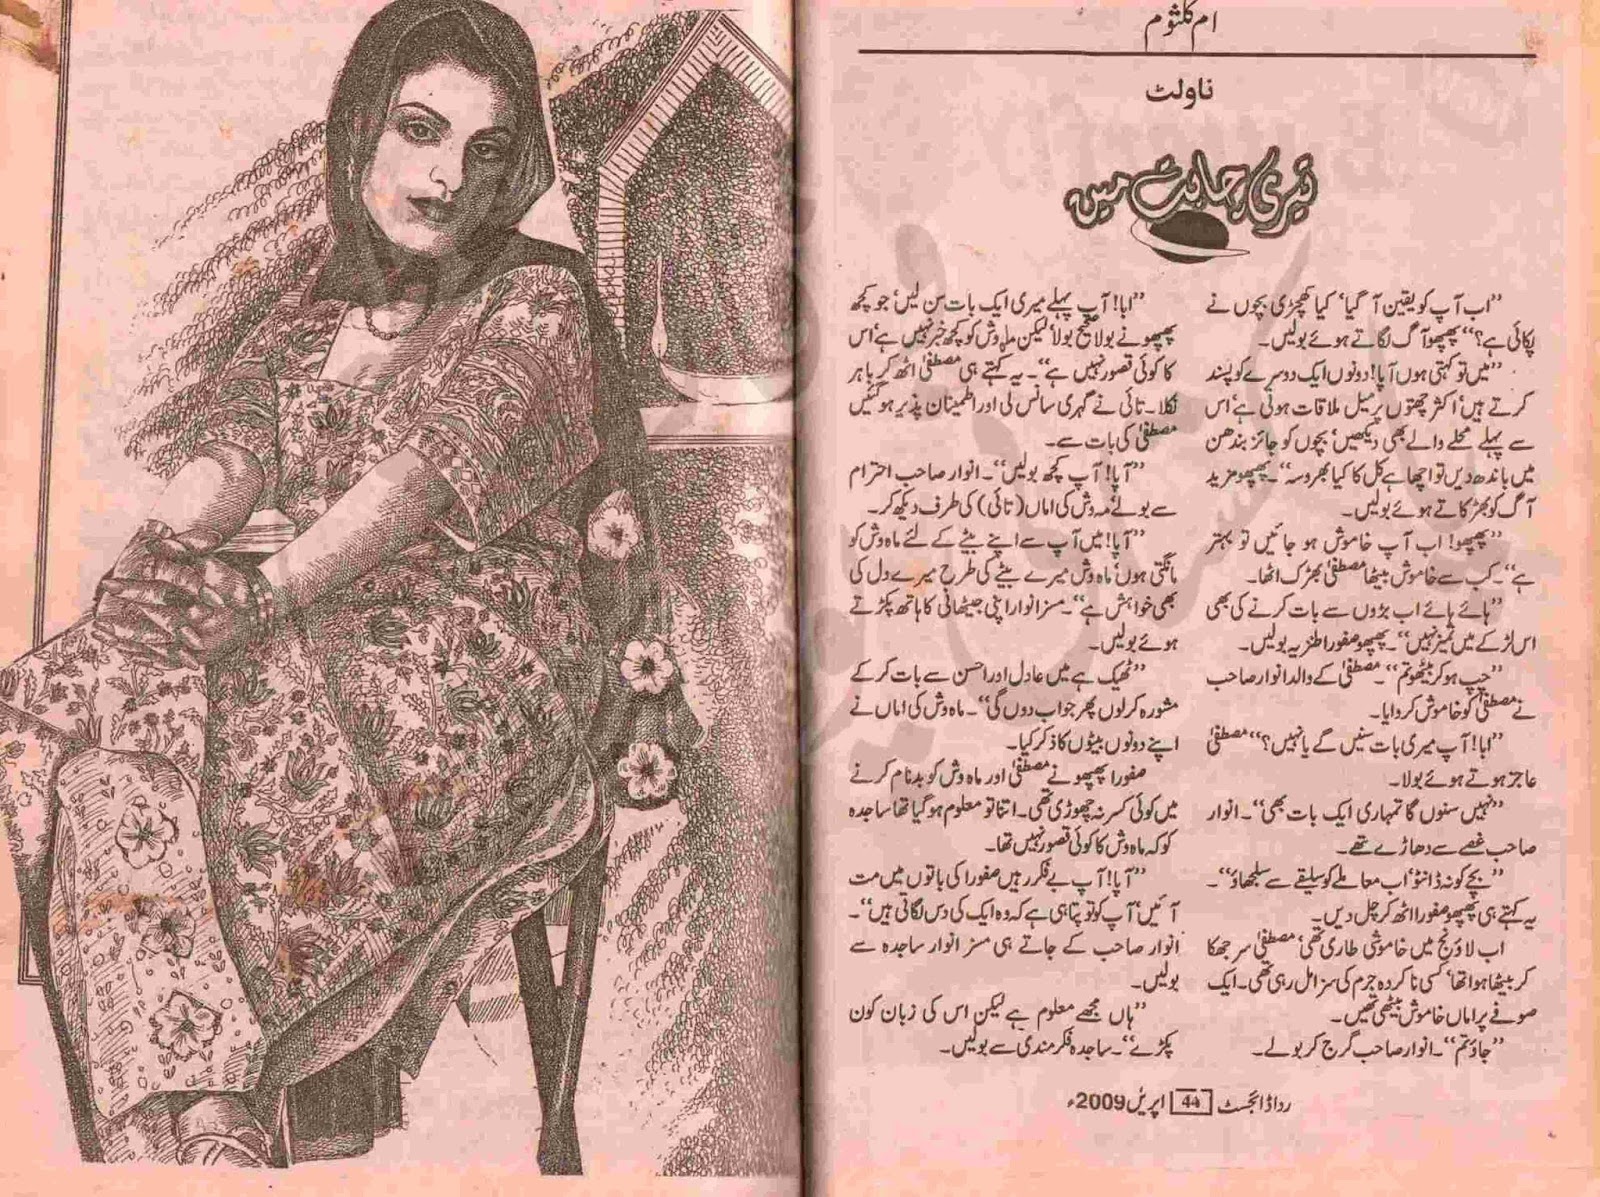 ام کلثوم
ناولٹ
تیری چاہت میں
”اب آپ کو یقین آ گیا‘ کیا کھچڑی بچوں نے
پکائی ہے؟“ پھپھو آگ لگاتے ہوئے بولیں۔
”میں تو کہتی ہوں آپا! دونوں ایک دوسرے کو پسند
کرتے ہیں‘ اکثر چھتوں پر میل ملاقات ہوئی ہے‘ اس
سے پہلے محلے والے بھی دیکھیں‘ بچوں کو جائز بندھن
میں باندھ دیں تو اچھا ہے کل کا کیا بھروسہ“۔ پھپھو مزید
آگ کو بھڑکاتے ہوئے بولیں۔
”پھپھو! اب آپ خاموش ہو جائیں تو بہتر
ہے“۔ کب سے خاموش بیٹھا مصطفیٰ بھڑک اٹھا۔
”ہائے ہائے اب بڑوں سے بات کرنے کی بھی
اس لڑکے میں تمیز نہیں“۔ پھپھو صفورا طنزیہ بولیں۔
”چپ ہو کر بیٹھو تم“۔ مصطفیٰ کے والد انوار صاحب
نے مصطفیٰ کو خاموش کروایا۔
”ابا! آپ میری بات سنیں گے یا نہیں؟“ مصطفیٰ
عاجز ہوتے ہوئے بولا۔
”نہیں سنوں گا تمہاری ایک بات بھی“۔ انوار
صاحب غصے سے دھاڑے تھے۔
”بچے کو نہ ڈانٹو‘ اب معاملے کو سلیقے سے سلجھاؤ“۔
یہ کہتے ہی پھپھو صفورا اٹھ کر چل دیں۔
اب لاؤنج میں خاموشی طاری تھی‘ مصطفیٰ سر جھکا
کر بیٹھا ہوا تھا‘ کسی ناکردہ جرم کی سزا مل رہی تھی۔ ایک
صوفے پر اماں خاموش بیٹھی تھیں۔
”جاؤ تم“۔ انوار صاحب گرج کر بولے۔
”ابا! آپ پہلے میری ایک بات سن لیں‘ جو کچھ
پھپھو نے بولا صحیح بولا‘ لیکن ماہ وش کو کچھ خبر نہیں ہے‘ اس
کا کوئی قصور نہیں ہے“۔ یہ کہتے ہی مصطفیٰ اٹھ کر باہر
نکلا۔ تائی نے گہری سانس لی اور اطمینان پذیر ہو گئیں
مصطفیٰ کی بات سے۔
”آپا! آپ کچھ بولیں“۔ انوار صاحب احترام
سے بولے مہ وش کی اماں (تائی) کی طرف دیکھ کر۔
”آپا! میں آپ سے اپنے بیٹے کے لئے ماہ وش کو
مانگتی ہوں‘ ماہ وش میرے بیٹے کی طرح میرے دل کی
بھی خواہش ہے“۔ مسز انوار اپنی جیٹھانی کا ہاتھ پکڑتے
ہوئے بولیں۔
”ٹھیک ہے میں عادل اور احسن سے بات کر کے
مشورہ کر لوں پھر جواب دوں گی“۔ ماہ وش کی اماں نے
اپنے دونوں بیٹوں کا ذکر کیا۔
صفورا پھپھو نے مصطفیٰ اور ماہ وش کو بدنام کرنے
میں کوئی کسر نہ چھوڑی تھی۔ اتنا تو معلوم ہو گیا تھا ساجدہ
کو کہ ماہ وش کا کوئی قصور نہیں تھا۔
”آپا! آپ بے فکر رہیں صفورا کی باتوں میں مت
آئیں‘ آپ کو تو پتا ہی ہے کہ وہ ایک کی دس لگاتی ہیں“۔
انوار صاحب کے جاتے ہی مسز انوار ساجدہ سے
بولیں۔
”ہاں مجھے معلوم ہے لیکن اس کی زبان کون
پکڑے“۔ ساجدہ فکرمندی سے بولیں۔
ردا ڈائجسٹ 44 اپریل 2009ء